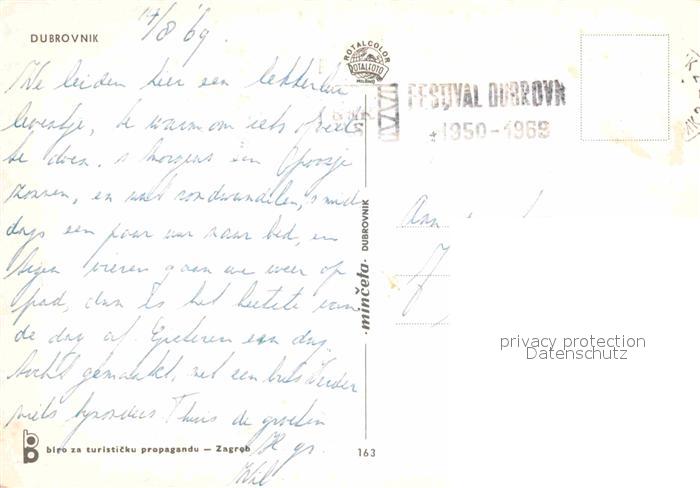 DUBROVNIK
14/8 '69.
We leiden hier een lekker lui
leventje, te warm om iets of veel
te doen. 's morgens een poosje
zonnen, en wat rondwandelen, 's mid
dags een paar uur naar bed, en
tegen vieren gaan we weer op
pad, dan is het heetste van
de dag af. Gisteren een dag
tocht gemaakt, met een bus. Verder
niets bijzonders Thuis de groeten
gr.
Wil
ROTALCOLOR
ROTALFOTO
MILANO
FESTIVAL DUBROVN
1950-1969
Aan
minčeta · DUBROVNIK
privacy protection
Datenschutz
biro za turističku propagandu — Zagreb
163